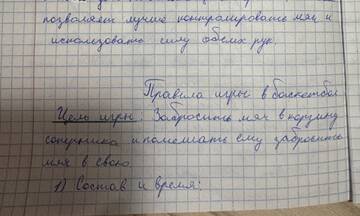 позволяет лучше контролировать мяч и
использовать силу обеих рук.
Правила игры в баскетбол
Цель игры: Забросить мяч в корзину
соперника и помешать ему забросить
мяч в свою
1) Состав и время: